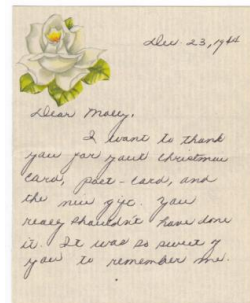 Dec 23, 1944
Dear Molly,
I want to thank
you for your Christmas
card, post-card, and
the nice gift. You
really shouldn't have done
it. It was so sweet of
you to remember me.